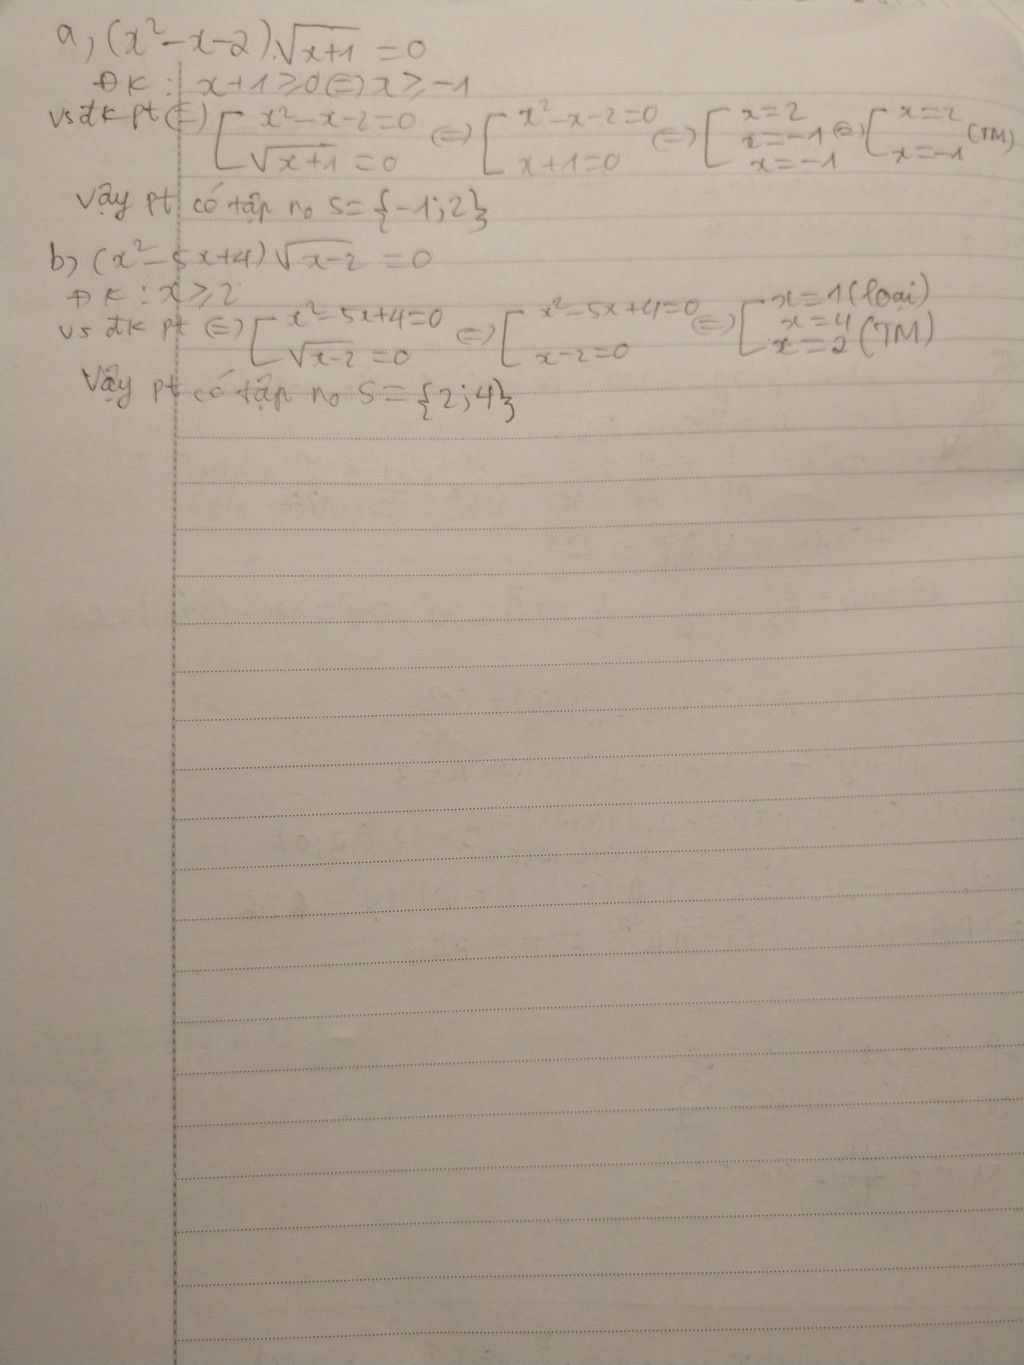 a, (x²-x-2).√x+1 = 0
ĐK : x+1 ≥ 0 (=) x ≥ -1
vs đk pt (=) [ x²-x-2=0 (=) [ x²-x-2=0 (=) [ x=2 (=) [ x=2
√x+1 = 0 x+1=0 x=-1 x=-1 (TM)
x=-1
Vậy pt có tập no S={-1;2}
b, (x²-5x+4)√x-2 = 0
ĐK : x ≥ 2
vs đk pt (=) [ x²-5x+4=0 (=) [ x²-5x+4=0 (=) [ x=1 (loại)
√x-2 = 0 x-2=0 x=4
x=2 (TM)
Vậy pt có tập no S={2;4}